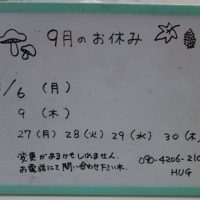 9月のお休み
/6 (月)
9 (木)
27(月) 28(火) 29(水) 30(木)
変更があるかもしれません。
お電話にて問い合わせ下さいませ。
090-4206-210
HUG